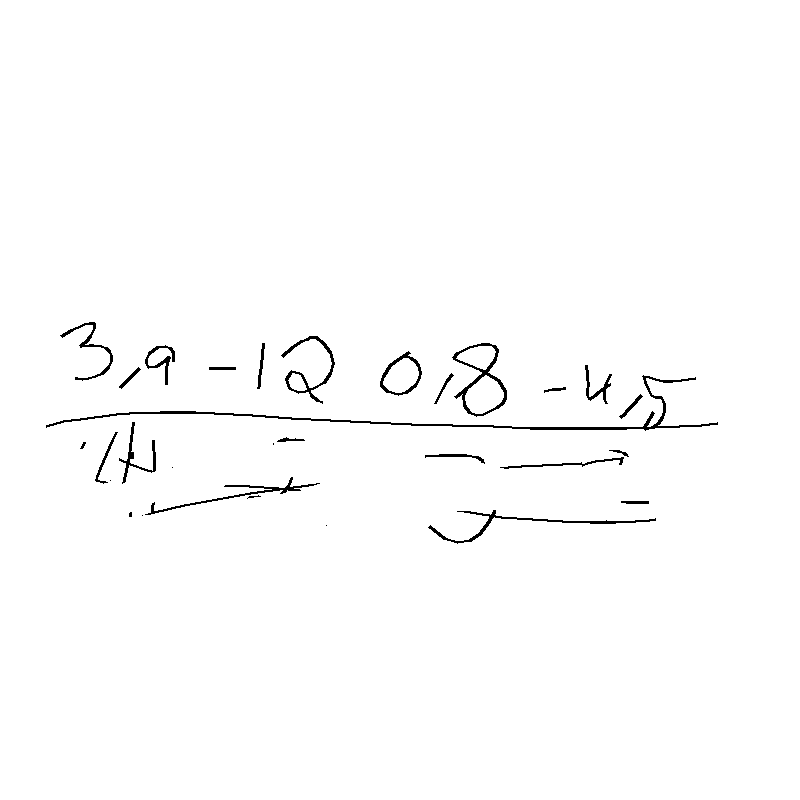 3,9 -12 0,8 -4,5